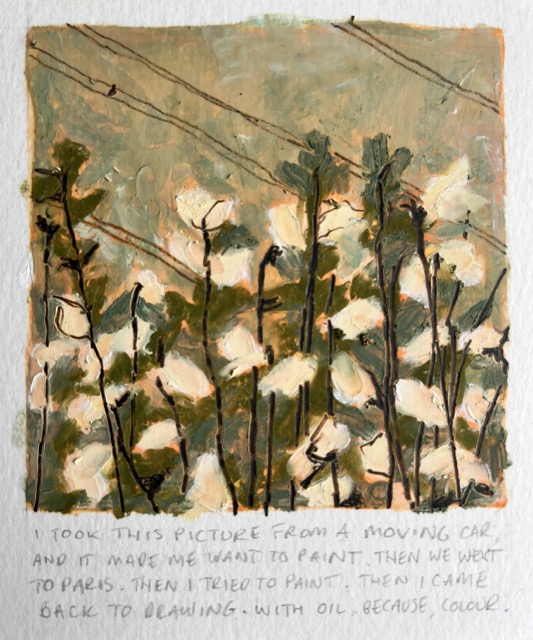 I TOOK THIS PICTURE FROM A MOVING CAR,
AND IT MADE ME WANT TO PAINT. THEN WE WENT
TO PARIS. THEN I TRIED TO PAINT. THEN I CAME
BACK TO DRAWING. WITH OIL, BECAUSE, COLOUR.